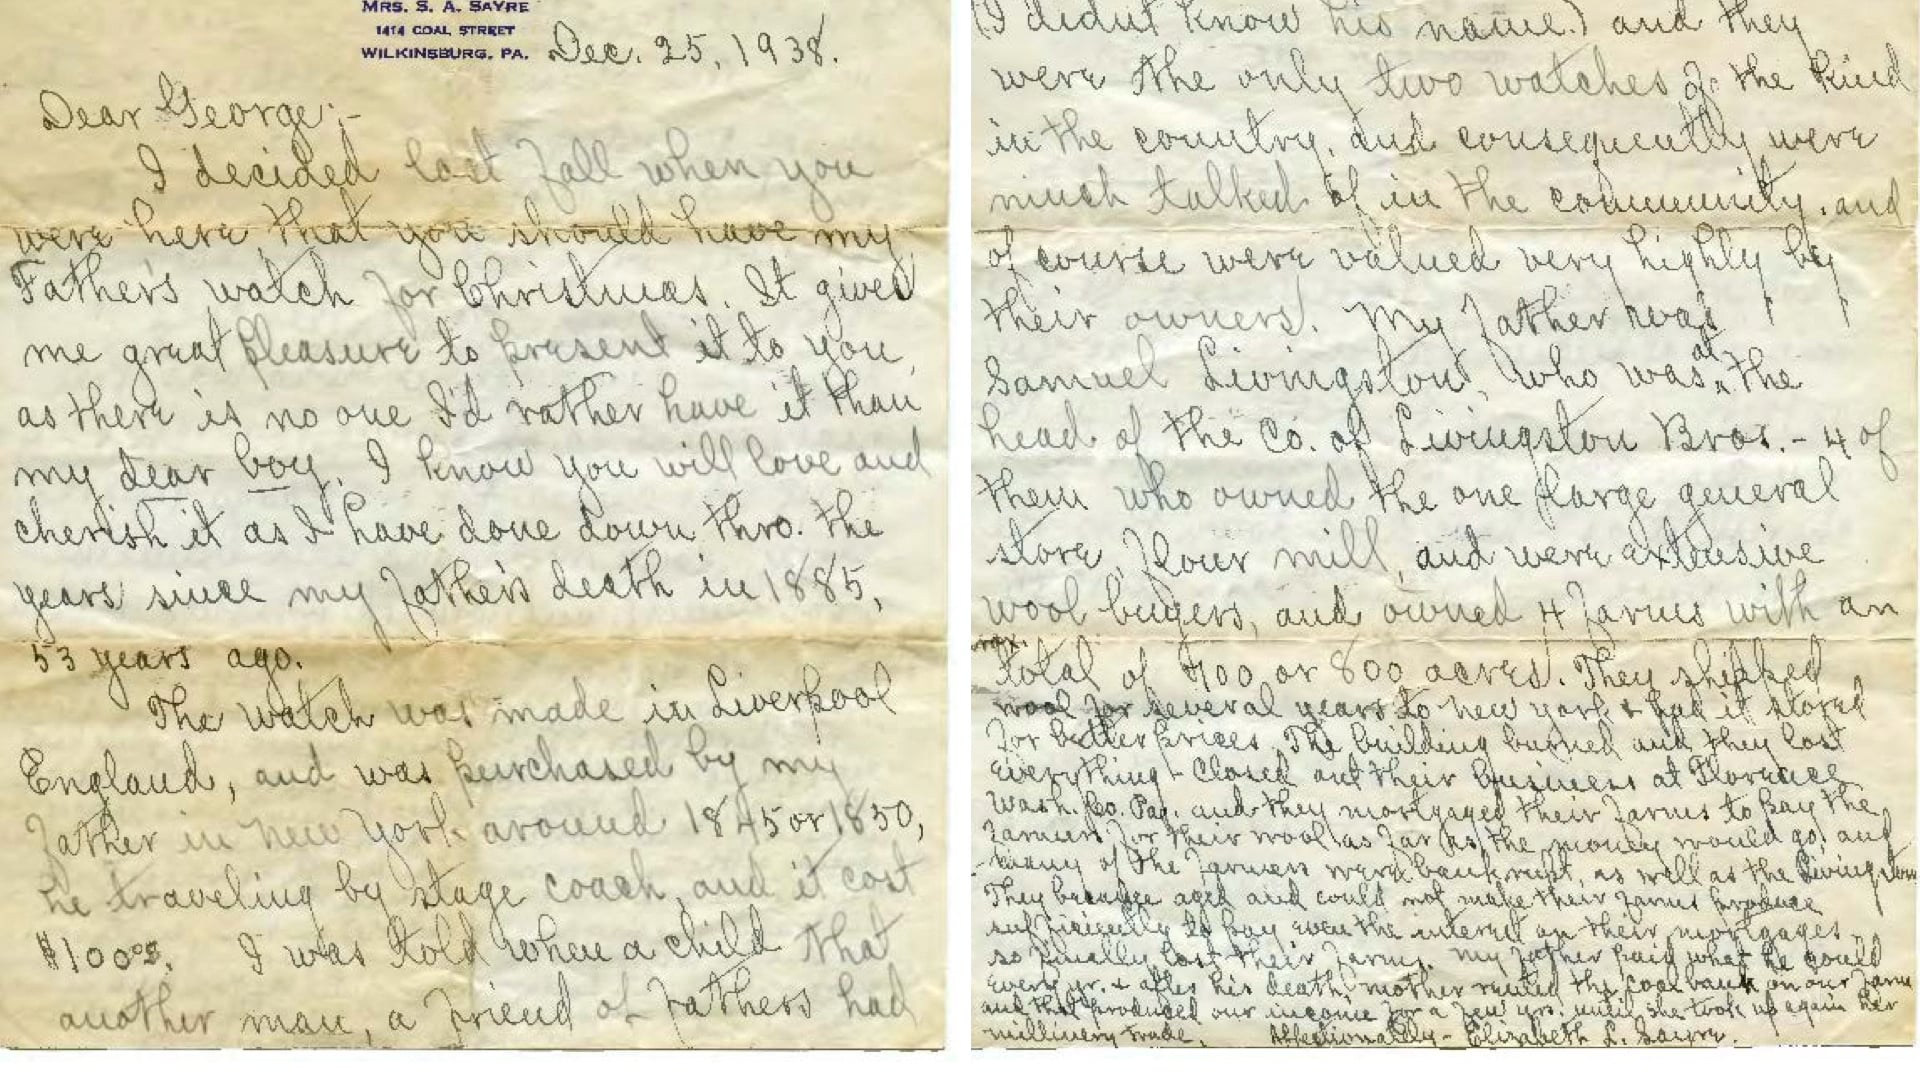 MRS. S. A. SAYRE
1414 COAL STREET
WILKINSBURG, PA.
Dec. 25, 1938.
Dear George:-
I decided last fall when you
were here, that you should have my
Father's watch for Christmas. It gives
me great pleasure to present it to you,
as there is no one I'd rather have it than
my dear boy. I know you will love and
cherish it as I have done down thro. the
years since my father's death in 1885,
53 years ago.
The watch was made in Liverpool
England, and was purchased by my
father in New York around 1845 or 1850,
he traveling by stage coach, and it cost
$100.00. I was told when a child that
another man, a friend of Father's had
(I didn't know his name.) and they
were the only two watches of the kind
in the country, and consequently were
much talked of in the community, and
of course were valued very highly by
their owners. My father was
Samuel Livingston, who was at the
head of the Co. of Livingston Bros. - 4 of
them who owned the one large general
store, flour mill, and were extensive
wool buyers, and owned 4 farms with an
total of 700 or 800 acres. They shipped
wool for several years to New York & had it stored
for better prices. The building burned and they lost
everything - Closed out their business at Florence
Wash. Co. Pa. and they mortgaged their farms to pay the
farmers for their wool as far as the money would go, and
many of the farmers were bankrupt, as well as the Livingstons
They became aged and could not make their farms produce
sufficiently to pay even the interest on their mortgages
so finally lost their farms. My father paid what he could
every yr. & after his death, mother rented the coal bank on our farm
and that produced our income for a few yrs. until she took up again her
millinery trade. Affectionately - Elizabeth L. Sayre.